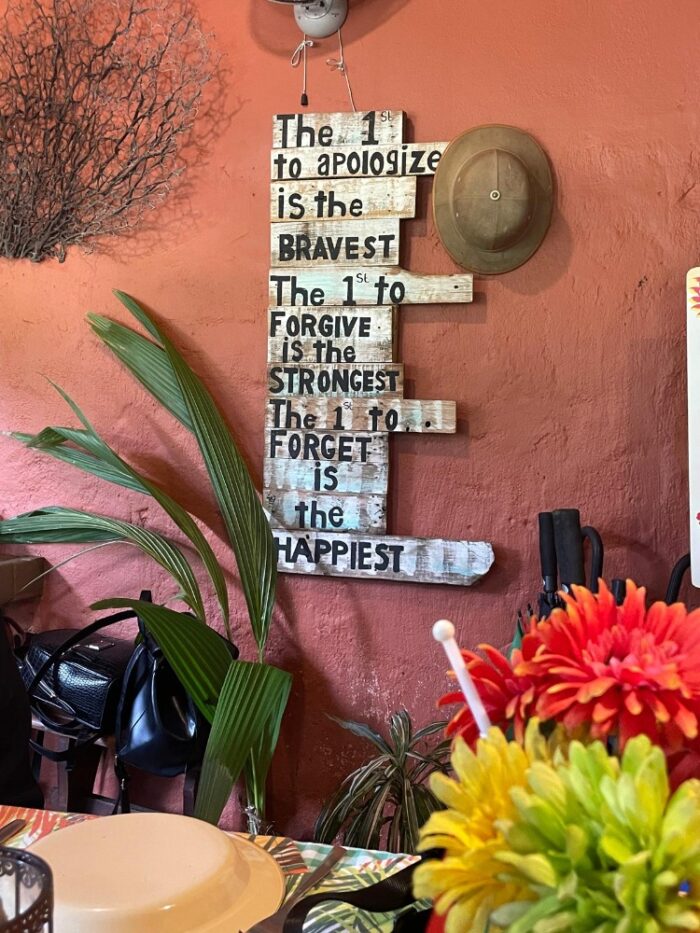 The 1st
to apologize
is the
BRAVEST
The 1st to
FORGIVE
is the
STRONGEST
The 1st to..
FORGET
is
the
HAPPIEST